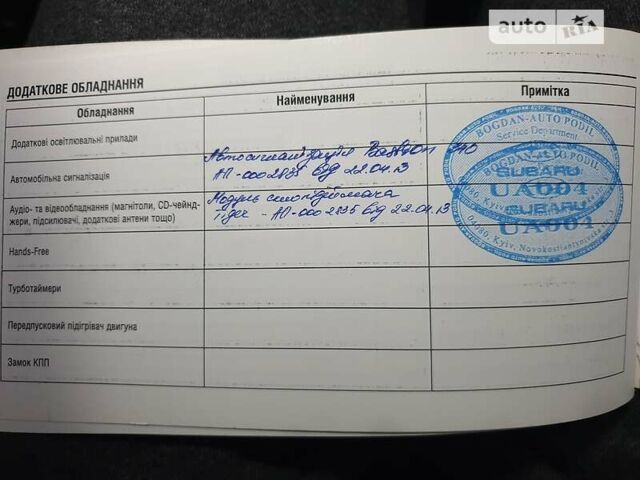 auto RIA
ДОДАТКОВЕ ОБЛАДНАННЯ
Обладнання
Найменування
Примітка
Додаткові освітлювальні прилади
Автомобільна сигналізація
Автосигналізація
АП-0002835 від 22.04.13
Аудіо- та відеообладнання (магнітоли, CD-чейнд-
жери, підсилювачі, додаткові антени тощо)
Модуль склопідіймача
АП-0002835 від 22.04.13
Hands-Free
Турботаймери
Передпусковий підігрівач двигуна
Замок КПП
BOGDAN-AUTO PODIL
Service Department
BOGDAN-AUTO PODIL
SUBARU
UA004
SUBARU
UA004
04080, Kyiv, Novokostiantynivska